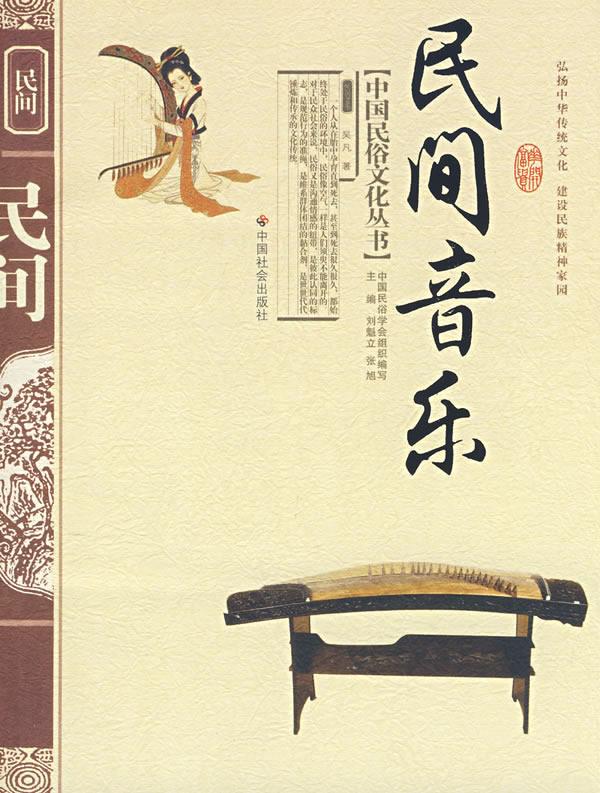 弘扬中华传统文化 建设民族精神家园
民间音乐
【中国民俗文化丛书】
中国民俗学会组织编写
主 编 刘魁立 张旭
吴凡 著
一个人从在胎中孕育直到死去、甚至到死去很久很久，都始
终处于民俗的环境中，民俗像空气一样是人们须臾不能离开的。
对于民众社会来说，民俗又是沟通情感的纽带，是彼此认同的标
志，是规范行为的准绳，是维系群体团结的黏合剂，是世世代代
锤炼和传承的文化传统。
中国社会出版社
民间
民间